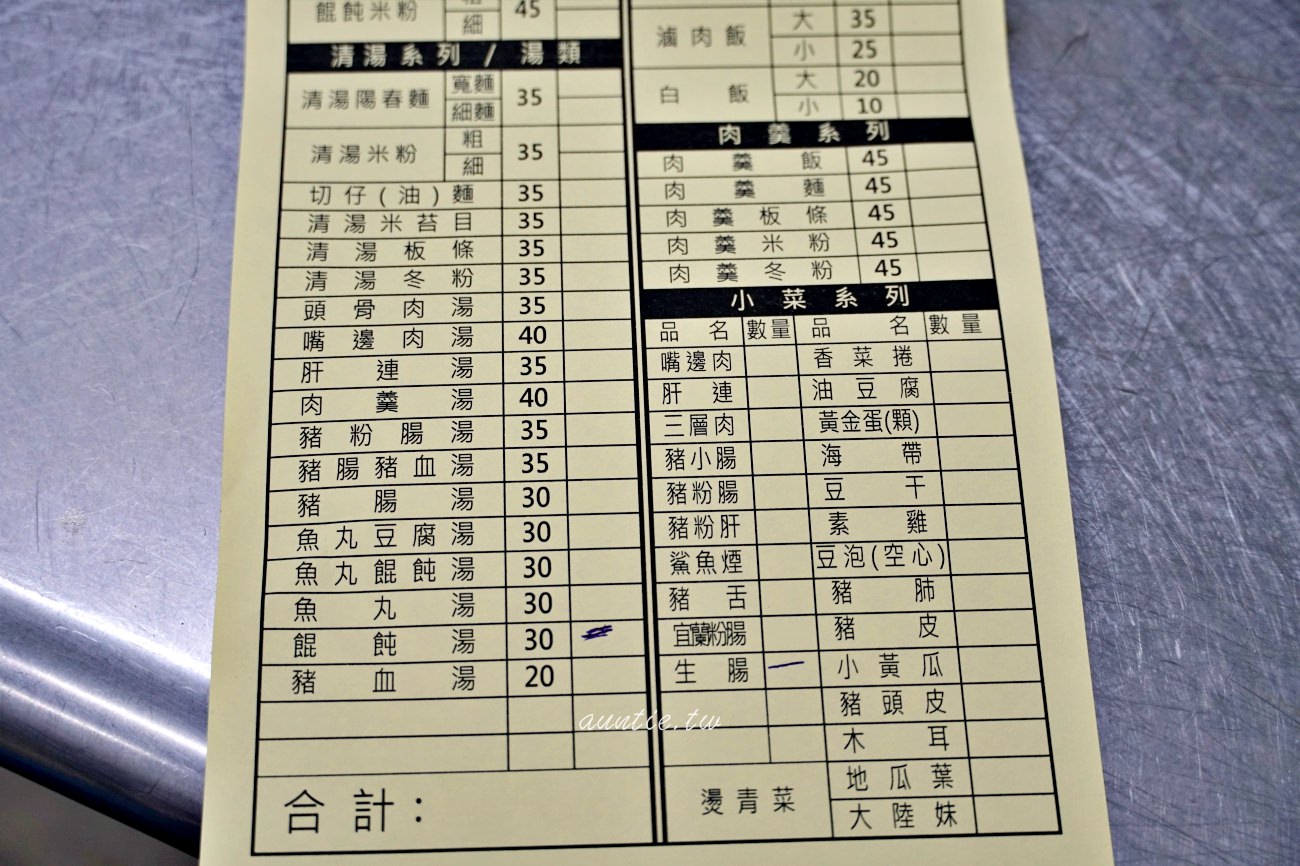 餛飩米粉 粗 45
細
清湯系列 / 湯類
清湯陽春麵 寬麵 35
細麵
清湯米粉 粗 35
細
切仔(油)麵 35
清湯米苔目 35
清湯板條 35
清湯冬粉 35
頭骨肉湯 35
嘴邊肉湯 40
肝連湯 35
肉羹湯 40
豬粉腸湯 35
豬腸豬血湯 35
豬腸湯 30
魚丸豆腐湯 30
魚丸餛飩湯 30
魚丸湯 30
餛飩湯 30
豬血湯 20
合計:
滷肉飯 大 35
小 25
白飯 大 20
小 10
肉羹系列
肉羹飯 45
肉羹麵 45
肉羹板條 45
肉羹米粉 45
肉羹冬粉 45
小菜系列
品名 數量 品名 數量
嘴邊肉 香菜捲
肝連 油豆腐
三層肉 黃金蛋(顆)
豬小腸 海帶
豬粉腸 豆干
豬粉肝 素雞
鯊魚煙 豆泡(空心)
豬舌 豬肺
宜蘭粉腸 豬皮
生腸 一 小黃瓜
豬頭皮
木耳
燙青菜 地瓜葉
大陸妹
auntie.tw